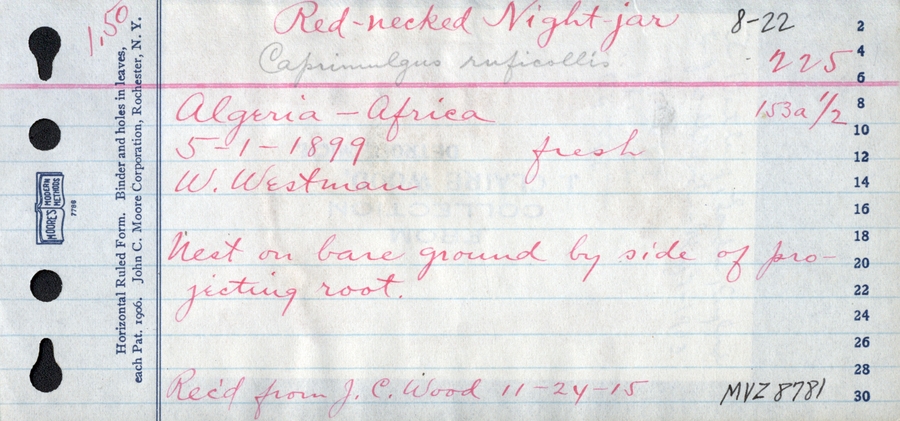 1.50
Red-necked Night-jar 8-22
Caprimulgus ruficollis 225
Algeria - Africa 153a 1/2
5-1-1899 fresh
W. Westman
Nest on bare ground by side of pro-
jecting root.
Rec'd from J. C. Wood 11-24-15
MVZ 8781
2
4
6
8
10
12
14
16
18
20
22
24
26
28
30
Horizontal Ruled Form. Binder and holes in leaves,
each Pat. 1906. John C. Moore Corporation, Rochester, N. Y.
MOORE'S MODERN METHODS
7798